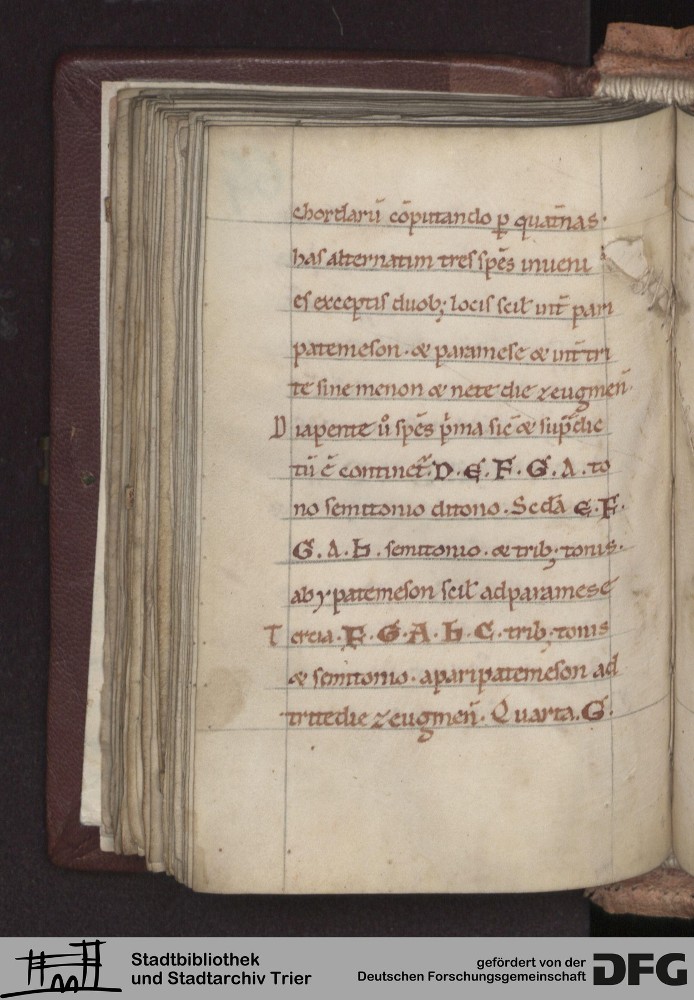 chordarū cōputando ꝑ quat̄nas·
has alternatim tres spēs inueni
es exceptis duob; locis scil int̄ pari
patemeson· & paramese & int̄ tri
te sinemenon & nete die zeugmen̄·
Diapente ū spēs p̄ma sic̄ & sup̄ dic
tū ē continet᷑· D· E· F· G· A· to
no semitonio ditono· Scd̄a E· F·
G· A· Ⱶ· semitonio· & trib; tonis·
ab ypatemeson scil ad paramese
Tercia· F· G· A· Ⱶ· C· trib; tonis
& semitonio· a paripatemeson ad
tritedie zeugmen̄· Quarta· G·
Stadtbibliothek
und Stadtarchiv Trier
gefördert von der
Deutschen Forschungsgemeinschaft
DFG